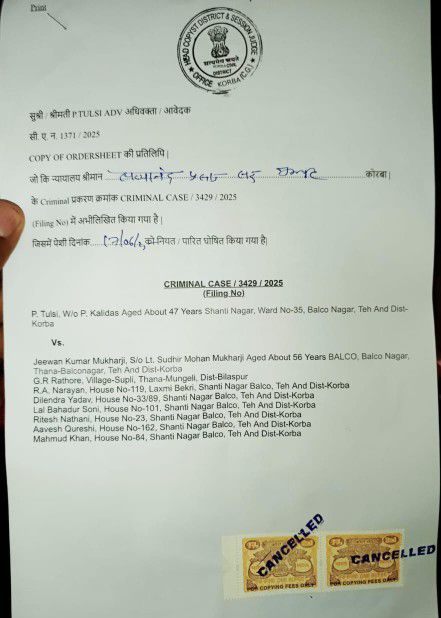 Print
HEAD COPYIST DISTRICT & SESSION JUDGE
सत्यमेव जयते
DISTRICT
OFFICE KORBA (C.G.)
सुश्री / श्रीमती P.TULSI ADV अधिवक्ता / आवेदक
सी. ए. न. 1371 / 2025
COPY OF ORDERSHEET की प्रतिलिपि |
जो कि न्यायालय श्रीमान कोरबा |
के Criminal प्रकरण क्रमांक CRIMINAL CASE / 3429 / 2025
(Filing No) में अभीलिखित किया गया है |
जिसमें पेशी दिनांक..... को नियत / पारित घोषित किया गया है|
CRIMINAL CASE / 3429 / 2025
(Filing No)
P. Tulsi, W/o P. Kalidas Aged About 47 Years Shanti Nagar, Ward No-35, Balco Nagar, Teh And Dist-
Korba
Vs.
Jeewan Kumar Mukharji, S/o Lt. Sudhir Mohan Mukharji Aged About 56 Years BALCO, Balco Nagar,
Thana-Balconagar, Teh And Dist-Korba
G.R Rathore, Village-Supli, Thana-Mungeli, Dist-Bilaspur
R.A. Narayan, House No-119, Laxmi Bekri, Shanti Nagar Balco, Teh And Dist-Korba
Dilendra Yadav, House No-33/89, Shanti Nagar Balco, Teh And Dist-Korba
Lal Bahadur Soni, House No-101, Shanti Nagar Balco, Teh And Dist-Korba
Ritesh Nathani, House No-23, Shanti Nagar Balco, Teh And Dist-Korba
Aavesh Qureshi, House No-162, Shanti Nagar Balco, Teh And Dist-Korba
Mahmud Khan, House No-84, Shanti Nagar Balco, Teh And Dist-Korba
CANCELLED
CANCELLED
FOR COPYING FEES ONLY
FOR COPYING FEES ONLY